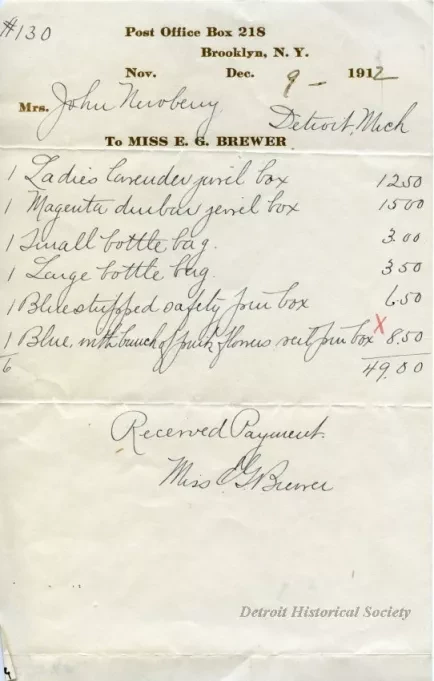 #130
Post Office Box 218
Brooklyn, N. Y.
Nov. Dec. 9 - 1912
Mrs. John Newberry
Detroit, Mich
To MISS E. G. BREWER
1 Ladies lavender jewil box 12 50
1 Magenta dunbar jewil box 15 00
1 Small bottle bag. 3.00
1 Large bottle bag. 3 50
1 Blue stripped safety pin box 6.50
1 Blue, with bunch of pink flowers pin box X 8.50
6 49.00
Received Payment.
Miss E G Brewer
Detroit Historical Society